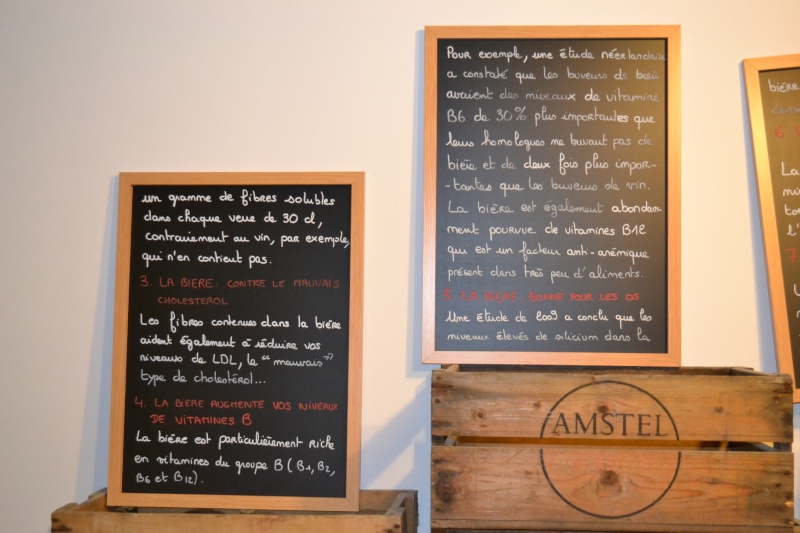 un gramme de fibres solubles
dans chaque verre de 30 cl,
contrairement au vin, par exemple,
qui n'en contient pas.
3. LA BIERE: CONTRE LE MAUVAIS
CHOLESTEROL
Les fibres contenues dans la bière
aident également à réduire vos
niveaux de LDL, le "mauvais"
type de cholestérol...
4. LA BIERE AUGMENTE VOS NIVEAUX
DE VITAMINES B
La bière est particulièrement riche
en vitamines du groupe B (B1, B2,
B6 et B12).
Pour exemple, une étude néerlandaise
a constaté que les buveurs de bière
avaient des niveaux de vitamine
B6 de 30% plus importantes que
leurs homologues ne buvant pas de
bière et de deux fois plus impor-
-tantes que les buveurs de vin.
La bière est également abondam-
ment pourvue de vitamines B12
qui est un facteur anti-anémique
présent dans très peu d'aliments.
5. LA BIERE: BONNE POUR LES OS
Une étude de 2009 a conclu que les
niveaux élevés de silicium dans la
AMSTEL
bière
6
La
7